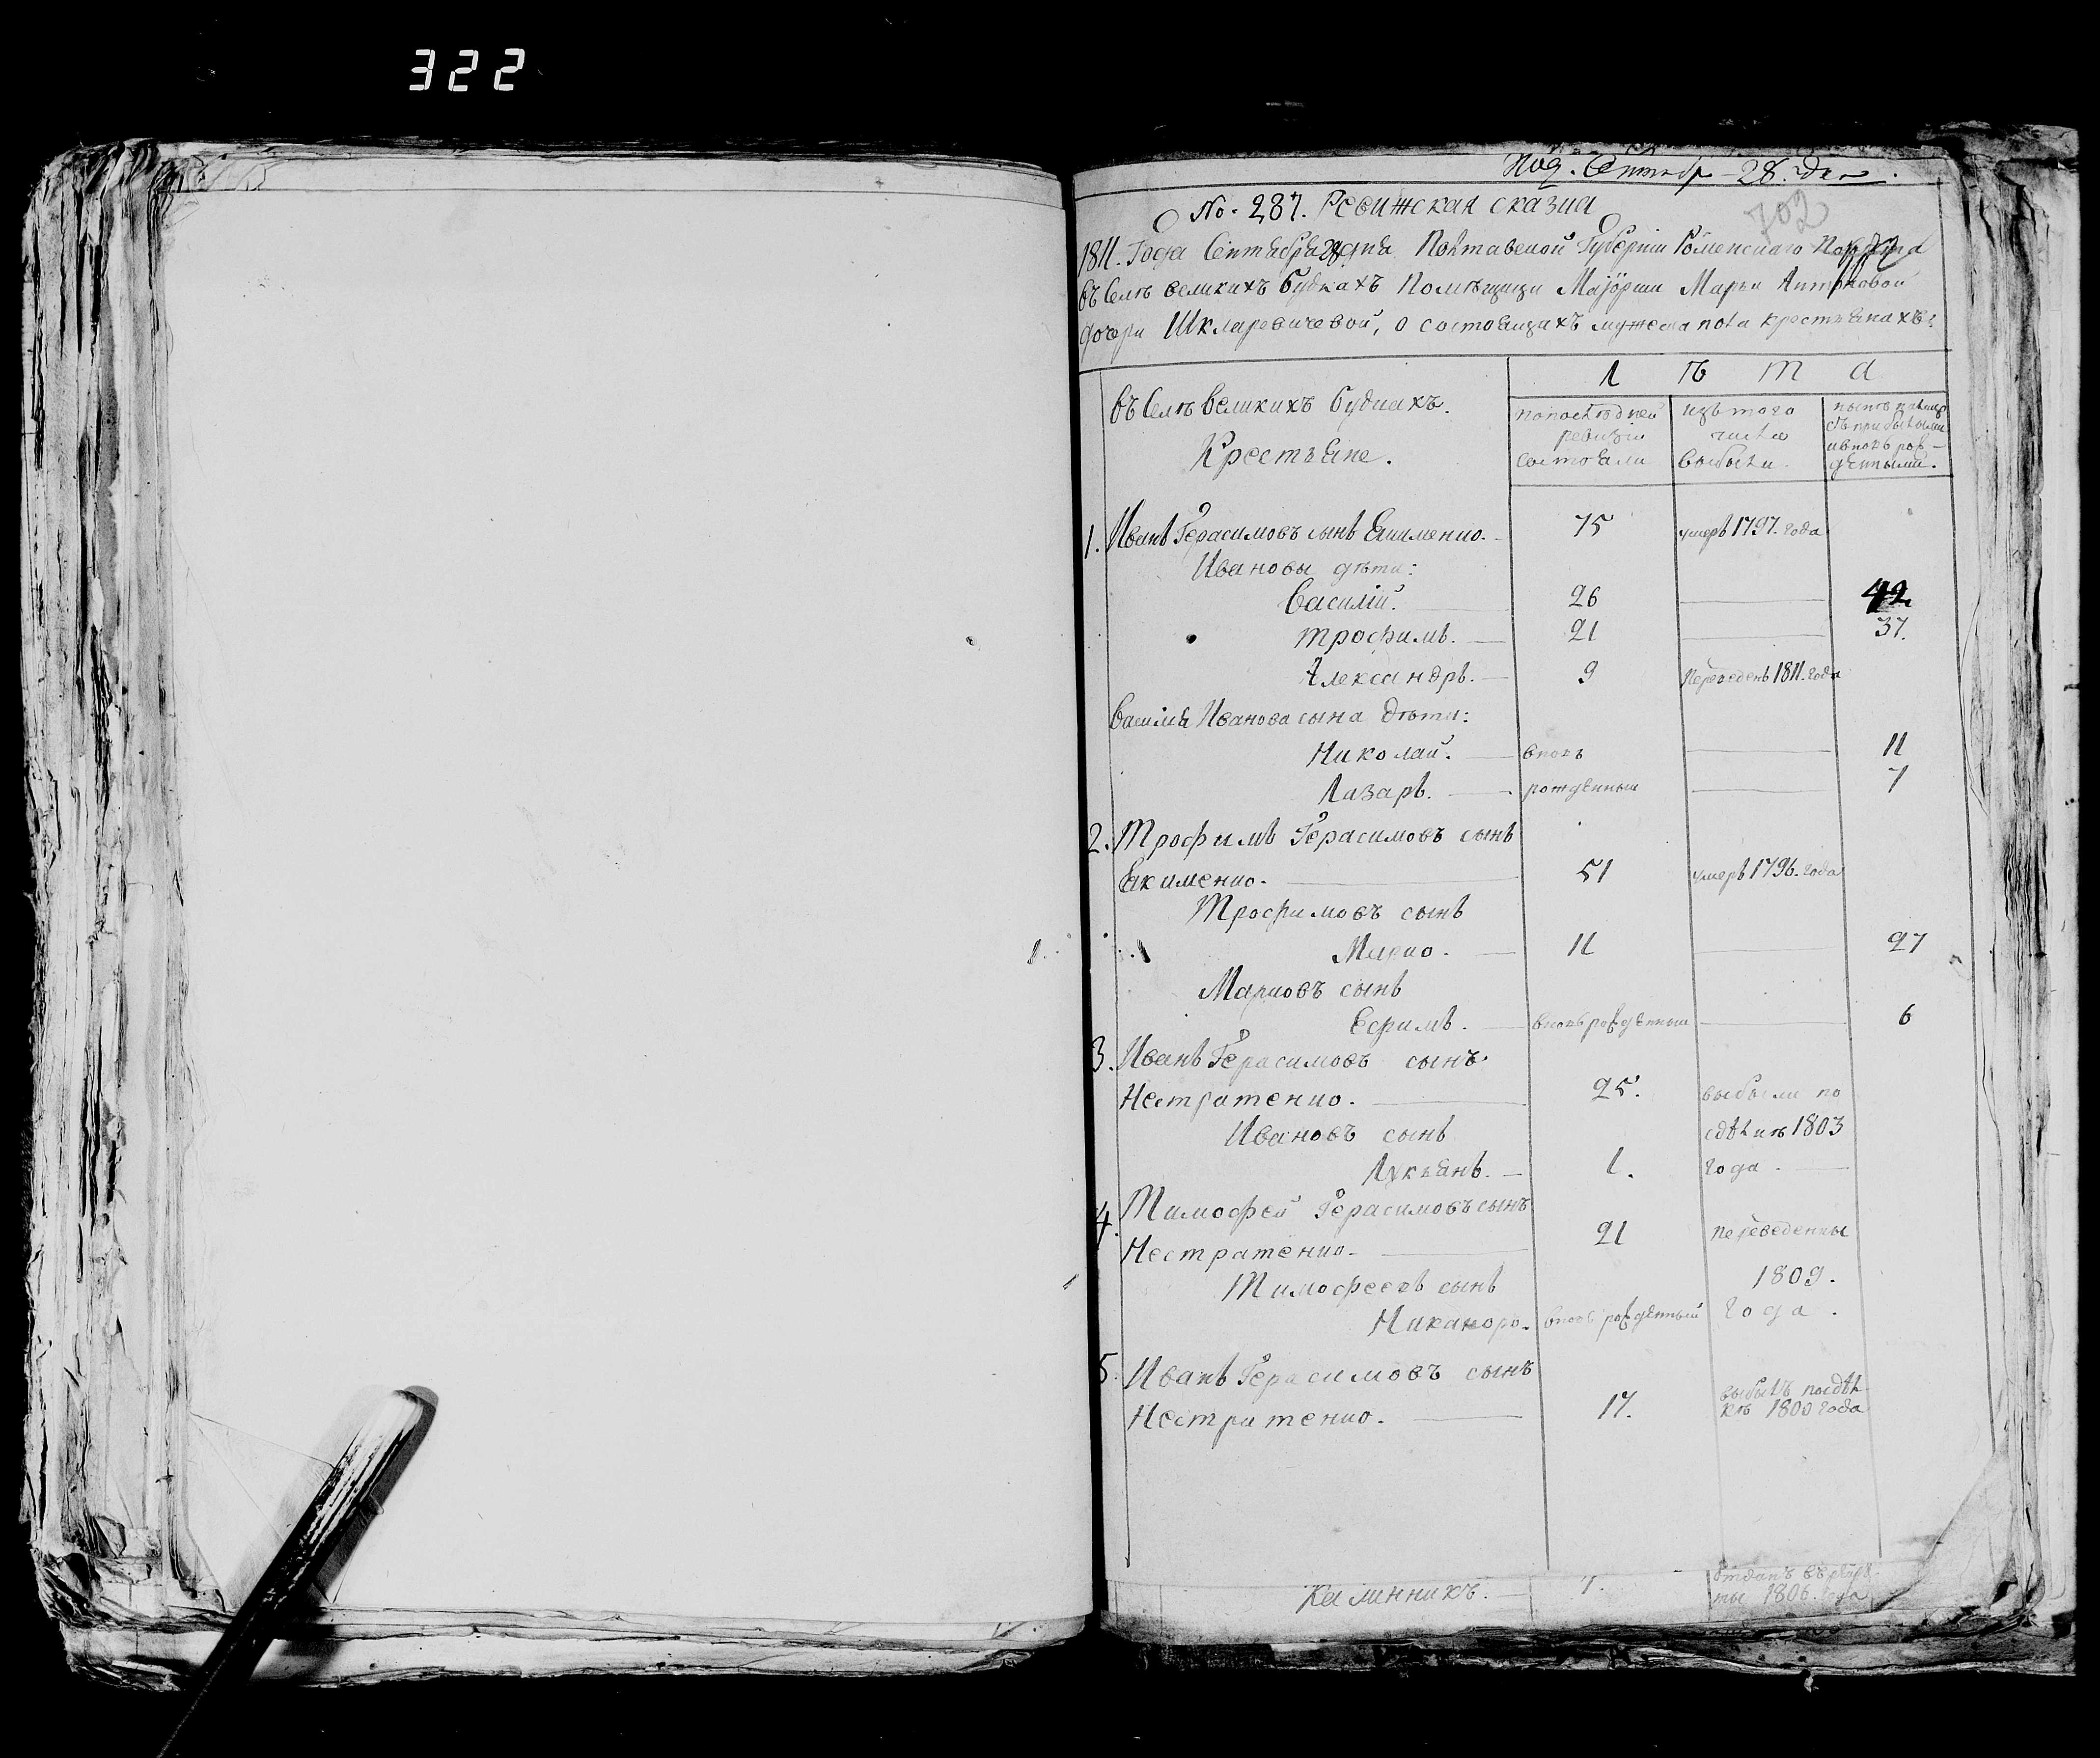 322
Под. Сентябр 28. дня.
702
No. 287. Ревижская сказка
1811. Года Сентября 28 дня Полтавской Губернии Роменского Повѣта
въ Селѣ великихъ будкахъ Помѣщици Маіорши Марьи Антоновой
дочери Шкляревичевой, о состоящихъ мужеска пола крестьянахъ:
въ Селѣ великихъ будкахъ.
Крестьяне.
Л ѣ т а
попослѣдней ревизіи состояли
изътого числа выбыли.
нынѣ налицо съприбылыми ивновь рожденными.
1. Иванъ Герасимовъ сынъ Екименко. 75 умеръ 1797. года
Ивановы дѣти:
Василій. 26 42.
трофимъ. 21 37.
Александръ. 9 Переведенъ 1811. года
Василія Иванова сына дѣти:
Николай. вновь 11
Лазарь. рожденныи 7
2. Трофимъ Герасимовъ сынъ
Екименко. 51 умеръ 1796. года
Трофимовъ сынъ
Марко. 11 27
Марковъ сынъ
Ефимъ. вновьрожденныи 6
3. Иванъ Герасимовъ сынъ
Нестратенко. 25. выбыли по
Ивановъ сынъ сдѣлкѣ 1803
Лукъянъ. 1. года
4. Тимофей Герасимовъ сынъ
Нестратенко. 21 переведенны
Тимофеевъ сынъ 1809.
Никаноръ. вновь рожденный года.
5. Иванъ Герасимовъ сынъ
Нестратенко. 17. выбылъ посдѣлкѣ 1800 года
Калинникъ. 7. отданъ въ рекруты 1806. года